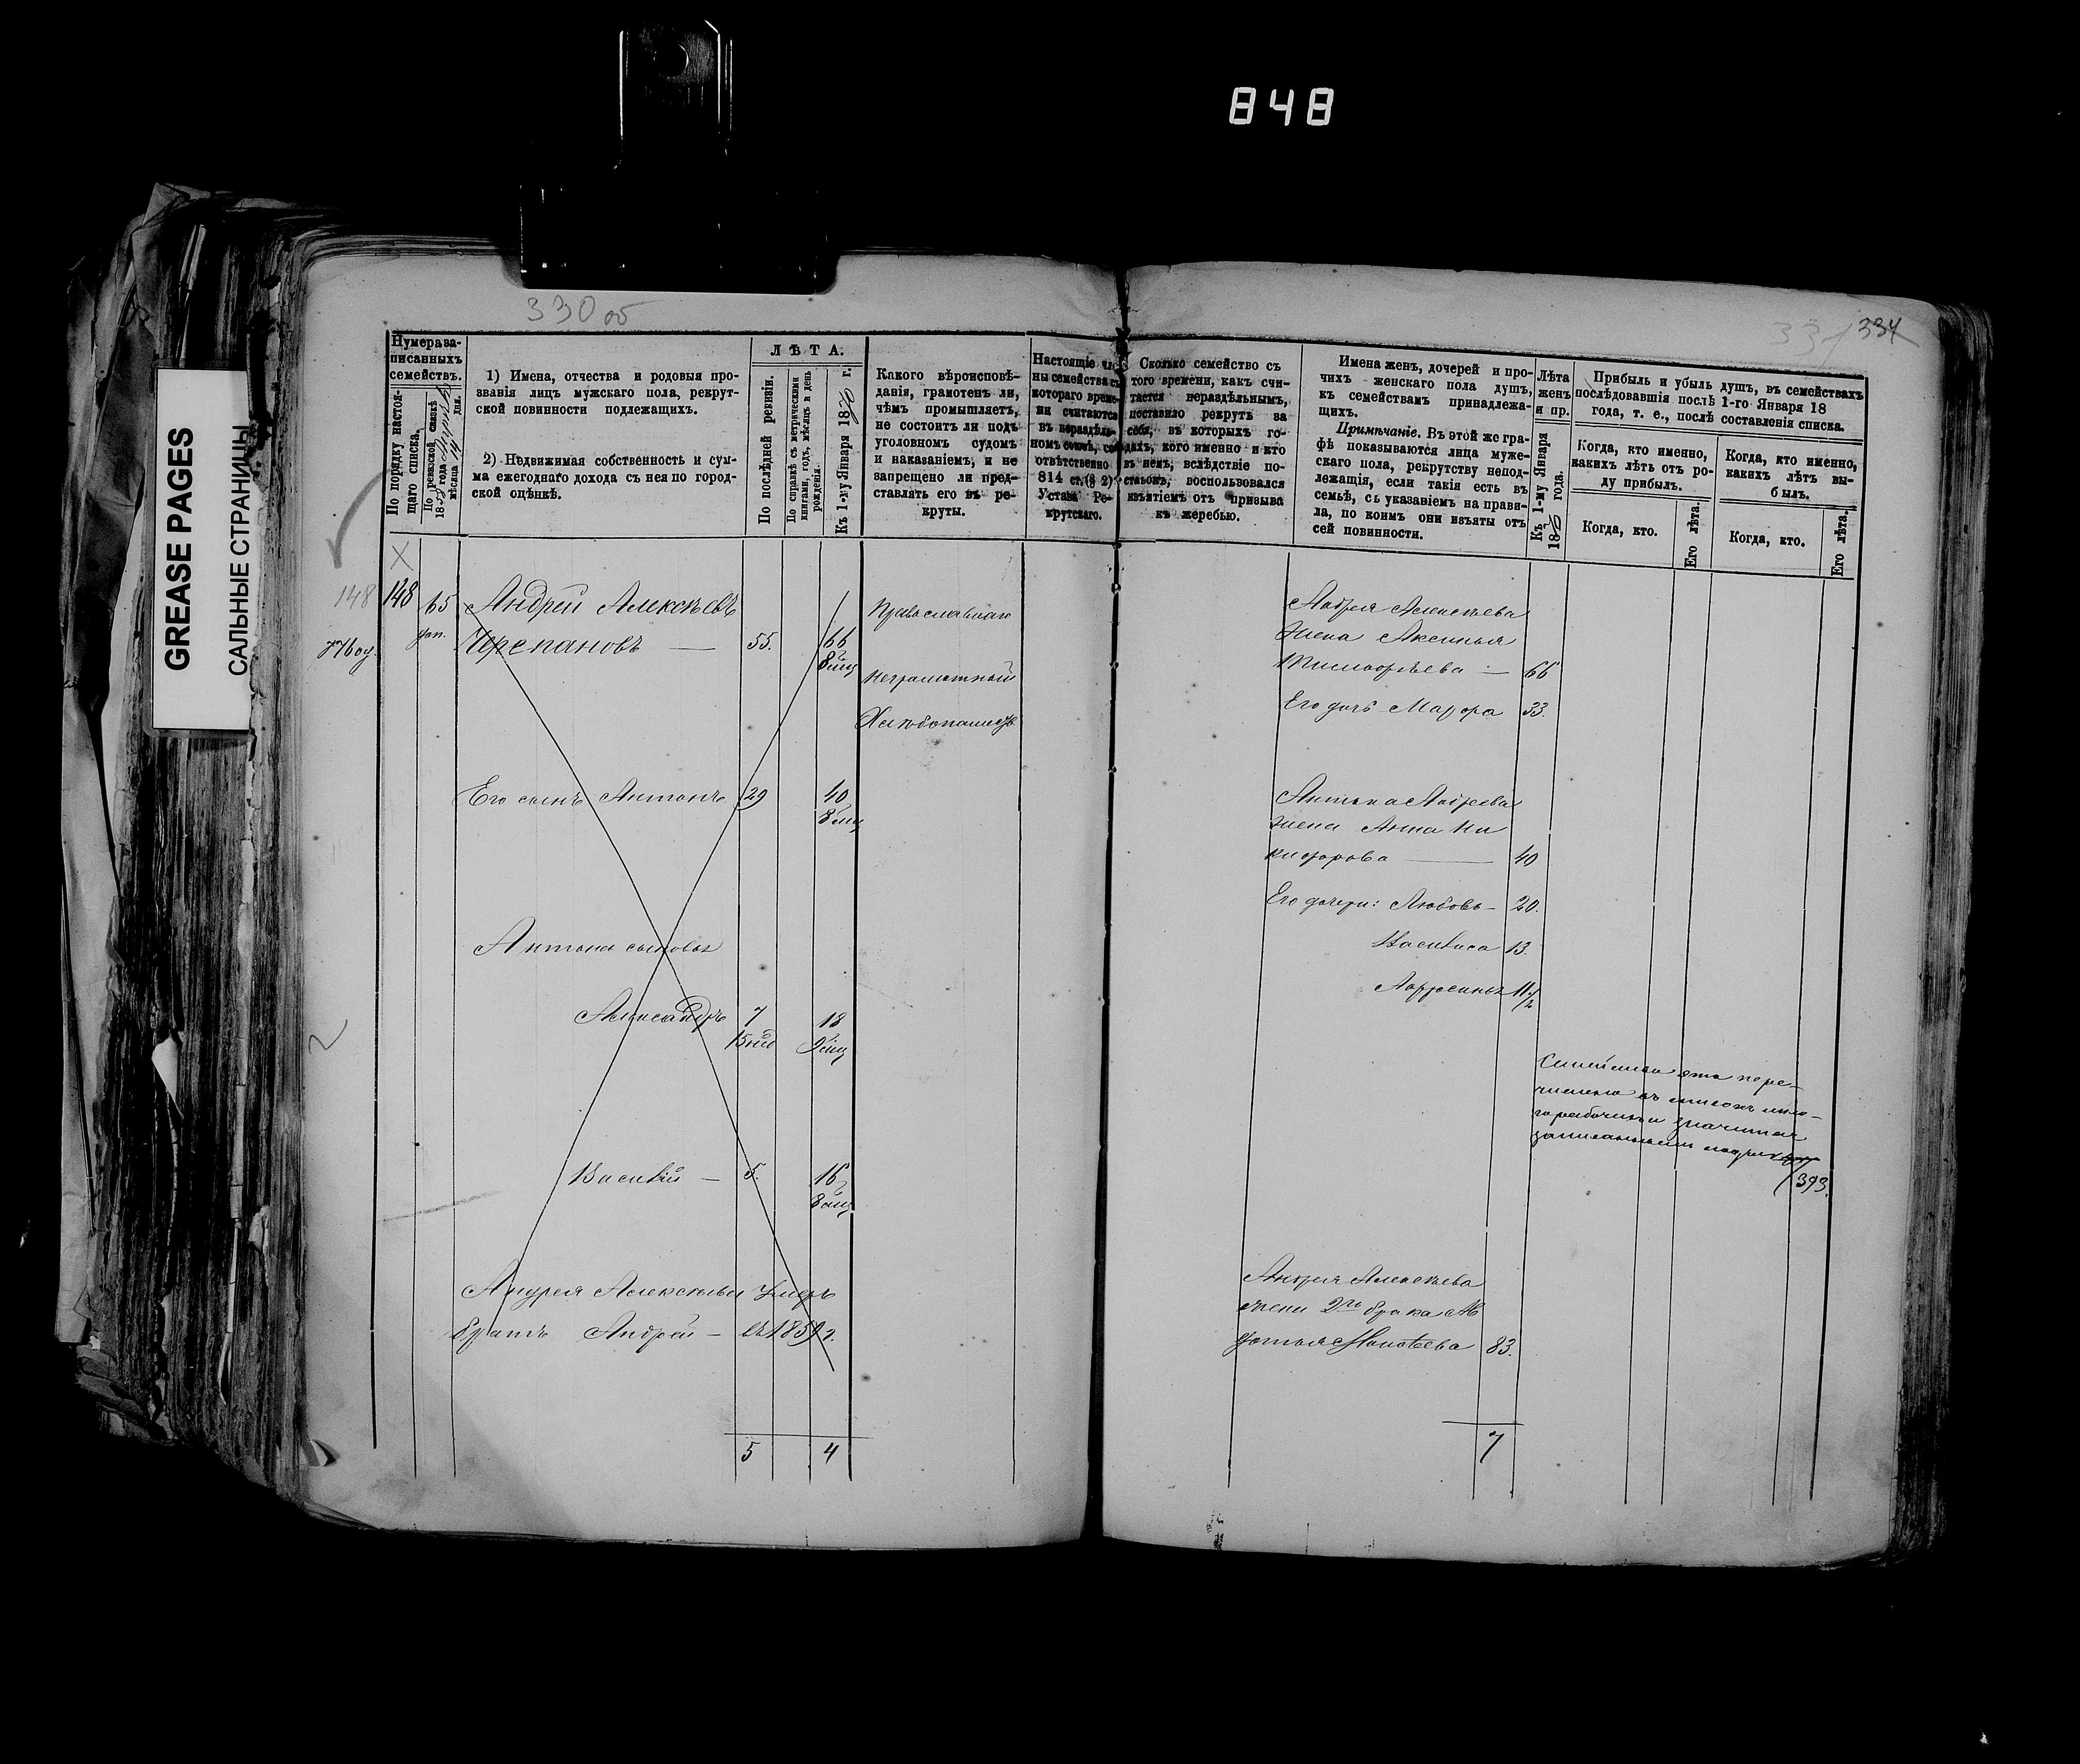 848
GREASE PAGES
САЛЬНЫЕ СТРАНИЦЫ
330 об
331 334
Нумера за-
писанныхъ
семействъ.
По порядку настоя-
щаго списка.
По ревизской сказкѣ
18 года
мѣсяца дня.
1) Имена, отчества и родовыя про-
званія лицъ мужскаго пола, рекрут-
ской повинности подлежащихъ.
2) Недвижимая собственность и сум-
ма ежегоднаго дохода съ нея по город-
ской оцѣнкѣ.
ЛѢТА.
По послѣдней ревизіи.
По справкѣ съ метрическими
книгами, годъ, мѣсяцъ и день
рожденія.
Къ 1-му Января 1870 г.
Какого вѣроисповѣ-
данія, грамотенъ ли,
чѣмъ промышляетъ,
не состоитъ ли подъ
уголовномъ судомъ
и наказаніемъ, и не
запрещено ли пред-
ставлять его въ ре-
круты.
Настоящіе чле-
ны семейства съ
котораго време-
ни считаются
въ нераздѣль-
номъ
отвѣтственно
814 ст. (§ 2)
Устава Ре-
крутскаго.
Сколько семейство съ
того времени, какъ счи-
тается нераздѣльнымъ,
поставило рекрутъ за
себя, въ которыхъ го-
дахъ, кого именно и кто
въ немъ, вслѣдствіе по-
воспользовался
изъятіемъ отъ призыва
къ жеребью.
Имена женъ, дочерей и про-
чихъ женскаго пола душъ,
къ семействамъ принадлежа-
щихъ.
Примѣчаніе. Въ этой же гра-
фѣ показываются лица муже-
скаго пола, рекрутству непод-
лежащія, если такія есть въ
семьѣ, съ указаніемъ на прави-
ла, по коимъ они изъяты отъ
сей повинности.
Лѣта
женъ
и пр.
Къ 1-му Января
1870 года.
Прибыль и убыль душъ, въ семействахъ
послѣдовавшія послѣ 1-го Января 18
года, т. е., послѣ составленія списка.
Когда, кто именно,
какихъ лѣтъ отъ ро-
ду прибылъ.
Когда, кто именно,
какихъ лѣтъ вы-
былъ.
Когда, кто.
Его лѣта.
Когда, кто.
Его лѣта.
148
148 65 Андрей Алексѣевъ
доп. Черепановъ — 55. 66
8 мц
Православнаго
неграмотный
Хлѣбопашецъ
Его сынъ Антонъ 29 40
8 мц
Антона сыновья
Александръ 7 18
9 мц
Василій — 5. 16
8 мц
Андрея Алексѣева умеръ
братъ Андрей — въ 185 г.
5 4
Андрея Алексѣева
жена Аксинья
Тимофѣева — 66
Его дочь Марфа 33.
Антона Андреева
жена Анна Ни
кифорова — 40
Его дочери: Любовь — 20.
Василиса 13.
Афросинья 11 1/2
Семейство это пере-
числено въ списокъ мно-
горабочихъ и значится
записаннымъ подъ №
393.
Андрея Алексѣева
жена 2го брака Ав
дотья 83.
7